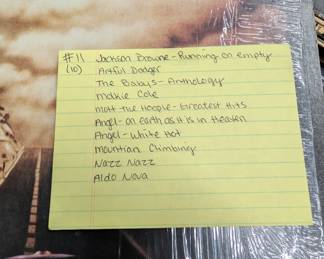 #11 Jackson Browne - Running on empty
(10) Artful Dodger
The Babys - Anthology
Makie Cole
Mott The Hoople - Greatest Hits
Angel - on earth as it is in Heaven
Angel - White Hot
Mountian Climbing
Nazz Nazz
Aldo Nova